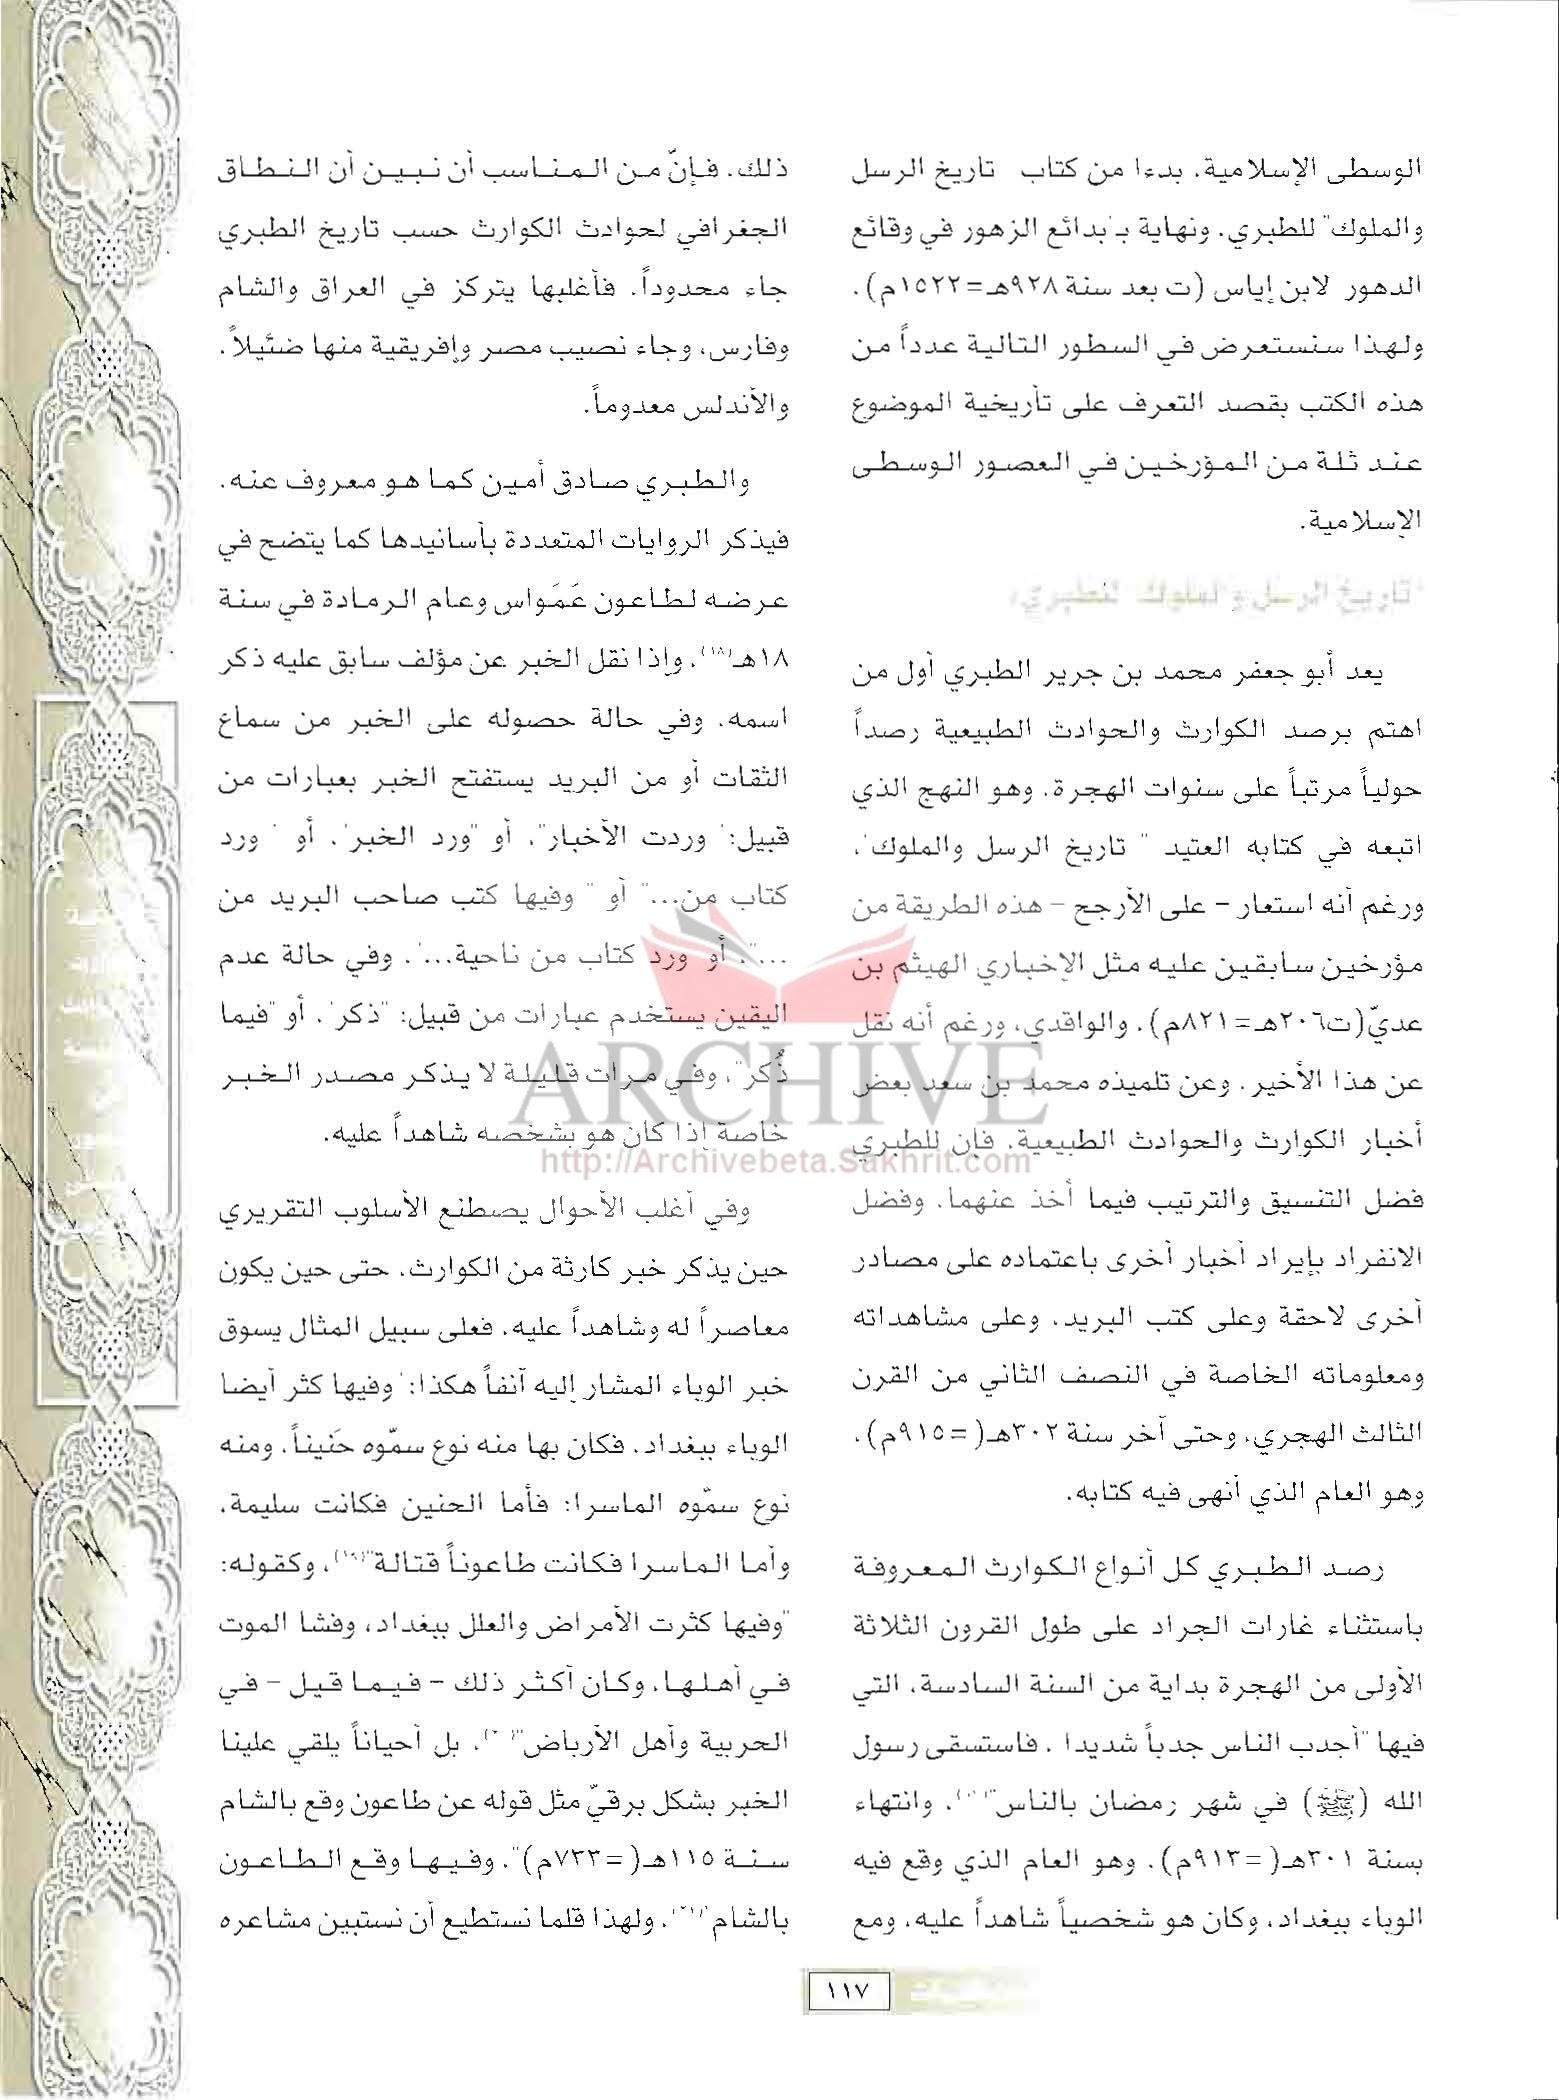 الوسطى الإسلامية. بدءا من كتاب تاريخ الرسل
والملوك" للطبري. ونهاية بـ'بدائع الزهور في وقائع
الدهور لابن إياس (ت بعد سنة ٩٢٨هـ=١٥٢٢م).
ولهذا سنستعرض في السطور التالية عدداً من
هذه الكتب بقصد التعرف على تأريخية الموضوع
عند ثلة من المؤرخين في العصور الوسطى
الإسلامية.
"تاريخ الرسل والملوك" للطبري:
يعد أبو جعفر محمد بن جرير الطبري أول من
اهتم برصد الكوارث والحوادث الطبيعية رصداً
حولياً مرتباً على سنوات الهجرة. وهو النهج الذي
اتبعه في كتابه العتيد " تاريخ الرسل والملوك'.
ورغم أنه استعار - على الأرجح - هذه الطريقة من
مؤرخين سابقين عليه مثل الإخباري الهيثم بن
عديّ(ت٢٠٦هـ=٨٢١م). والواقدي، ورغم أنه نقل
عن هذا الأخير. وعن تلميذه محمد بن سعد بعض
أخبار الكوارث والحوادث الطبيعية. فإن للطبري
فضل التنسيق والترتيب فيما أخذ عنهما. وفضل
الانفراد بإيراد أخبار أخرى باعتماده على مصادر
أخرى لاحقة وعلى كتب البريد. وعلى مشاهداته
ومعلوماته الخاصة في النصف الثاني من القرن
الثالث الهجري. وحتى آخر سنة ٣٠٢هـ(=٩١٥م).
وهو العام الذي أنهى فيه كتابه.
رصد الطبري كل أنواع الكوارث المعروفة
باستثناء غارات الجراد على طول القرون الثلاثة
الأولى من الهجرة بداية من السنة السادسة. التي
فيها "أجدب الناس جدباً شديدا . فاستسقى رسول
الله (ﷺ) في شهر رمضان بالناس". وانتهاء
بسنة ٣٠١هـ(=٩١٣م). وهو العام الذي وقع فيه
الوباء ببغداد، وكان هو شخصياً شاهداً عليه. ومع
ذلك. فإنّ من المناسب أن نبين أن النطاق
الجغرافي لحوادث الكوارث حسب تاريخ الطبري
جاء محدوداً. فأغلبها يتركز في العراق والشام
وفارس، وجاء نصيب مصر وإفريقية منها ضئيلاً.
والأندلس معدوماً.
والطبري صادق أمين كما هو معروف عنه.
فيذكر الروايات المتعددة بأسانيدها كما يتضح في
عرضه لطاعون عَمَواس وعام الرمادة في سنة
١٨هـ(١٨). وإذا نقل الخبر عن مؤلف سابق عليه ذكر
اسمه. وفي حالة حصوله على الخبر من سماع
الثقات أو من البريد يستفتح الخبر بعبارات من
قبيل:' وردت الأخبار". أو "ورد الخبر'. أو ' ورد
كتاب من..." أو " وفيها كتب صاحب البريد من
...". أو ورد كتاب من ناحية...'. وفي حالة عدم
اليقين يستخدم عبارات من قبيل: "ذكر'. أو "فيما
ذُكر". وفي مرات قليلة لا يذكر مصدر الخبر
خاصة إذا كان هو بشخصه شاهداً عليه.
وفي أغلب الأحوال يصطنع الأسلوب التقريري
حين يذكر خبر كارثة من الكوارث. حتى حين يكون
معاصراً له وشاهداً عليه. فعلى سبيل المثال يسوق
خبر الوباء المشار إليه آنفاً هكذا:' وفيها كثر أيضا
الوباء ببغداد. فكان بها منه نوع سمّوه حَنيناً. ومنه
نوع سمّوه الماسرا: فأما الحنين فكانت سليمة.
وأما الماسرا فكانت طاعوناً قتالة"(١٩). وكقوله:
"وفيها كثرت الأمراض والعلل ببغداد، وفشا الموت
في أهلها. وكان أكثر ذلك - فيما قيل - في
الحربية وأهل الأرباض"(٢٠). بل أحياناً يلقي علينا
الخبر بشكل برقيّ مثل قوله عن طاعون وقع بالشام
سنة ١١٥هـ(=٧٣٣م)". وفيها وقع الطاعون
بالشام"(٢١). ولهذا قلما نستطيع أن نستبين مشاعره
ARCHIVE
http://Archivebeta.Sakhrit.com
١١٧